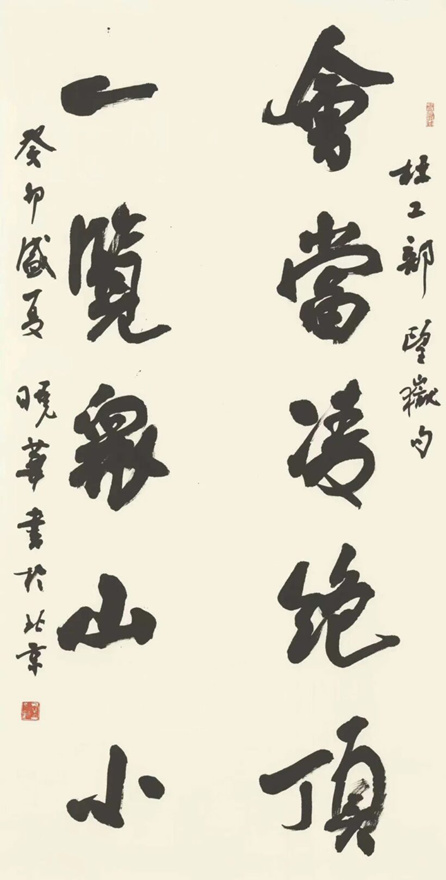 杜工部望嶽句
會當凌絕頂
一覽衆山小
癸卯盛夏 曉華書於北京